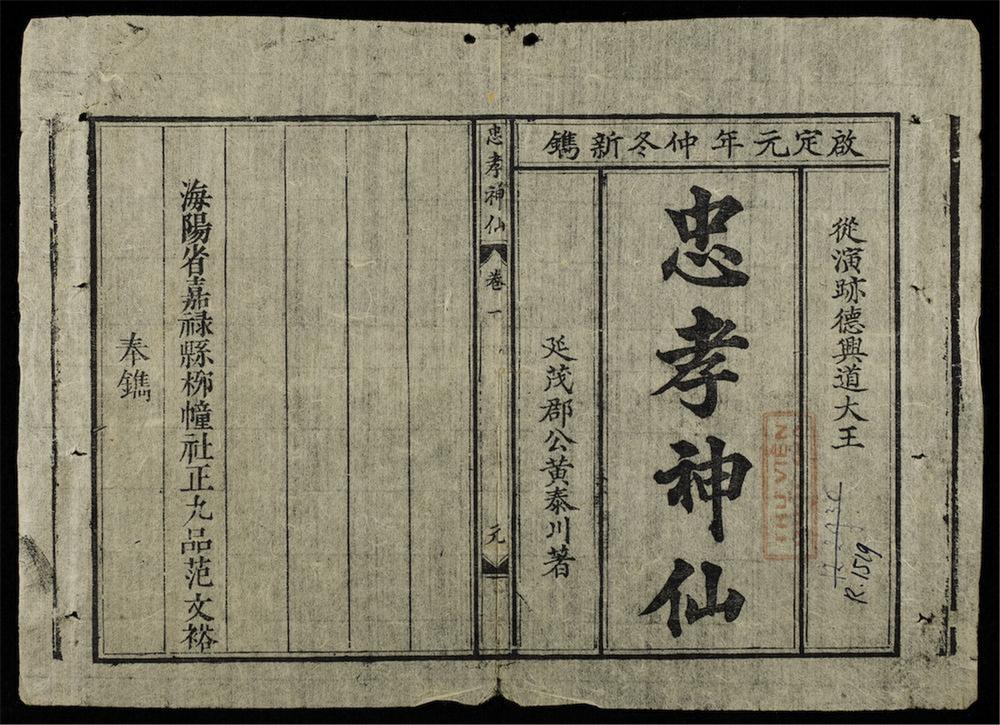 啟定元年仲冬新鐫
從演跡德興道大王
忠孝神仙
延茂郡公黃泰川著
忠孝神仙 卷一 元
海陽省嘉祿縣柳幢社正九品范文裕
奉鐫
THUVIEN
R.1519